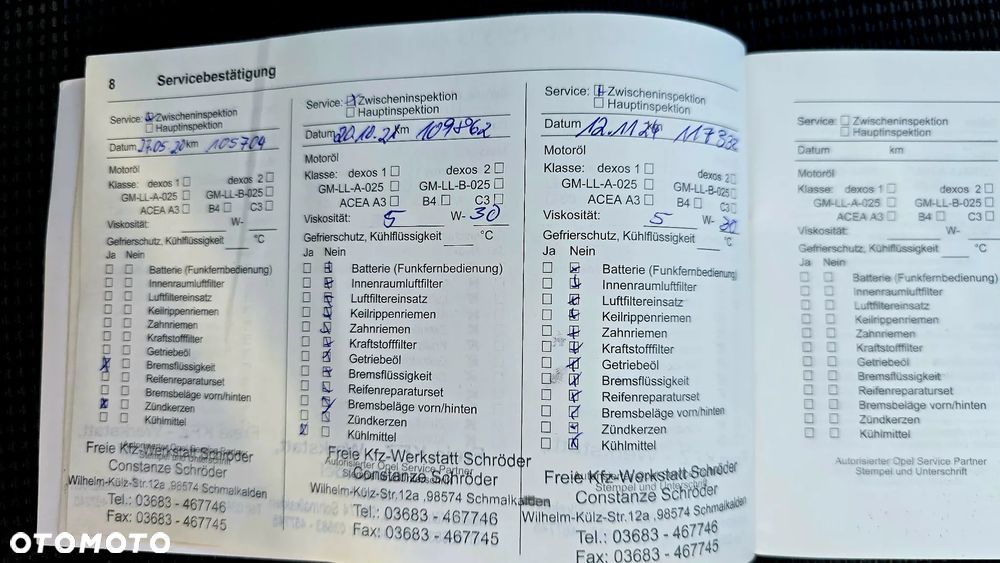 8 Servicebestätigung
Service: Zwischeninspektion
Hauptinspektion
Datum 27.05.20 km 105704
Motoröl
Klasse: dexos 1 dexos 2
GM-LL-A-025 GM-LL-B-025
ACEA A3 B4 C3
Viskosität: W-
Gefrierschutz, Kühlflüssigkeit °C
Ja Nein
Batterie (Funkfernbedienung)
Innenraumluftfilter
Luftfiltereinsatz
Keilrippenriemen
Zahnriemen
Kraftstofffilter
Getriebeöl
Bremsflüssigkeit
Reifenreparaturset
Bremsbeläge vorn/hinten
Zündkerzen
Kühlmittel
Freie Kfz-Werkstatt Schröder
Constanze Schröder
Wilhelm-Külz-Str.12a ,98574 Schmalkalden
Tel.: 03683 - 467746
Fax: 03683 - 467745
Service: Zwischeninspektion
Hauptinspektion
Datum 20.10.21 km 109862
Motoröl
Klasse: dexos 1 dexos 2
GM-LL-A-025 GM-LL-B-025
ACEA A3 B4 C3
Viskosität: 5 W- 30
Gefrierschutz, Kühlflüssigkeit °C
Ja Nein
Batterie (Funkfernbedienung)
Innenraumluftfilter
Luftfiltereinsatz
Keilrippenriemen
Zahnriemen
Kraftstofffilter
Getriebeöl
Bremsflüssigkeit
Reifenreparaturset
Bremsbeläge vorn/hinten
Zündkerzen
Kühlmittel
Freie Kfz-Werkstatt Schröder
Autorisierter Opel Service Partner
Constanze Schröder
Wilhelm-Külz-Str.12a ,98574 Schmalkalden
Tel.: 03683 - 467746
Fax: 03683 - 467745
Service: Zwischeninspektion
Hauptinspektion
Datum 12.11.24 km 117332
Motoröl
Klasse: dexos 1 dexos 2
GM-LL-A-025 GM-LL-B-025
ACEA A3 B4 C3
Viskosität: 5 W- 30
Gefrierschutz, Kühlflüssigkeit °C
Ja Nein
Batterie (Funkfernbedienung)
Innenraumluftfilter
Luftfiltereinsatz
Keilrippenriemen
Zahnriemen
Kraftstofffilter
Getriebeöl
Bremsflüssigkeit
Reifenreparaturset
Bremsbeläge vorn/hinten
Zündkerzen
Kühlmittel
Freie Kfz-Werkstatt Schröder
Stempel und Unterschrift
Constanze Schröder
Wilhelm-Külz-Str.12a ,98574 Schmalkalden
Tel.: 03683 - 467746
Fax: 03683 - 467745
Service: Zwischeninspektion
Hauptinspektion
Datum km
Motoröl
Klasse: dexos 1 dexos 2
GM-LL-A-025 GM-LL-B-025
ACEA A3 B4 C3
Viskosität: W-
Gefrierschutz, Kühlflüssigkeit °C
Ja Nein
Batterie (Funkfernbedienung)
Innenraumluftfilter
Luftfiltereinsatz
Keilrippenriemen
Zahnriemen
Kraftstofffilter
Getriebeöl
Bremsflüssigkeit
Reifenreparaturset
Bremsbeläge vorn/hinten
Zündkerzen
Kühlmittel
Autorisierter Opel Service Partner
Stempel und Unterschrift
OTOMOTO